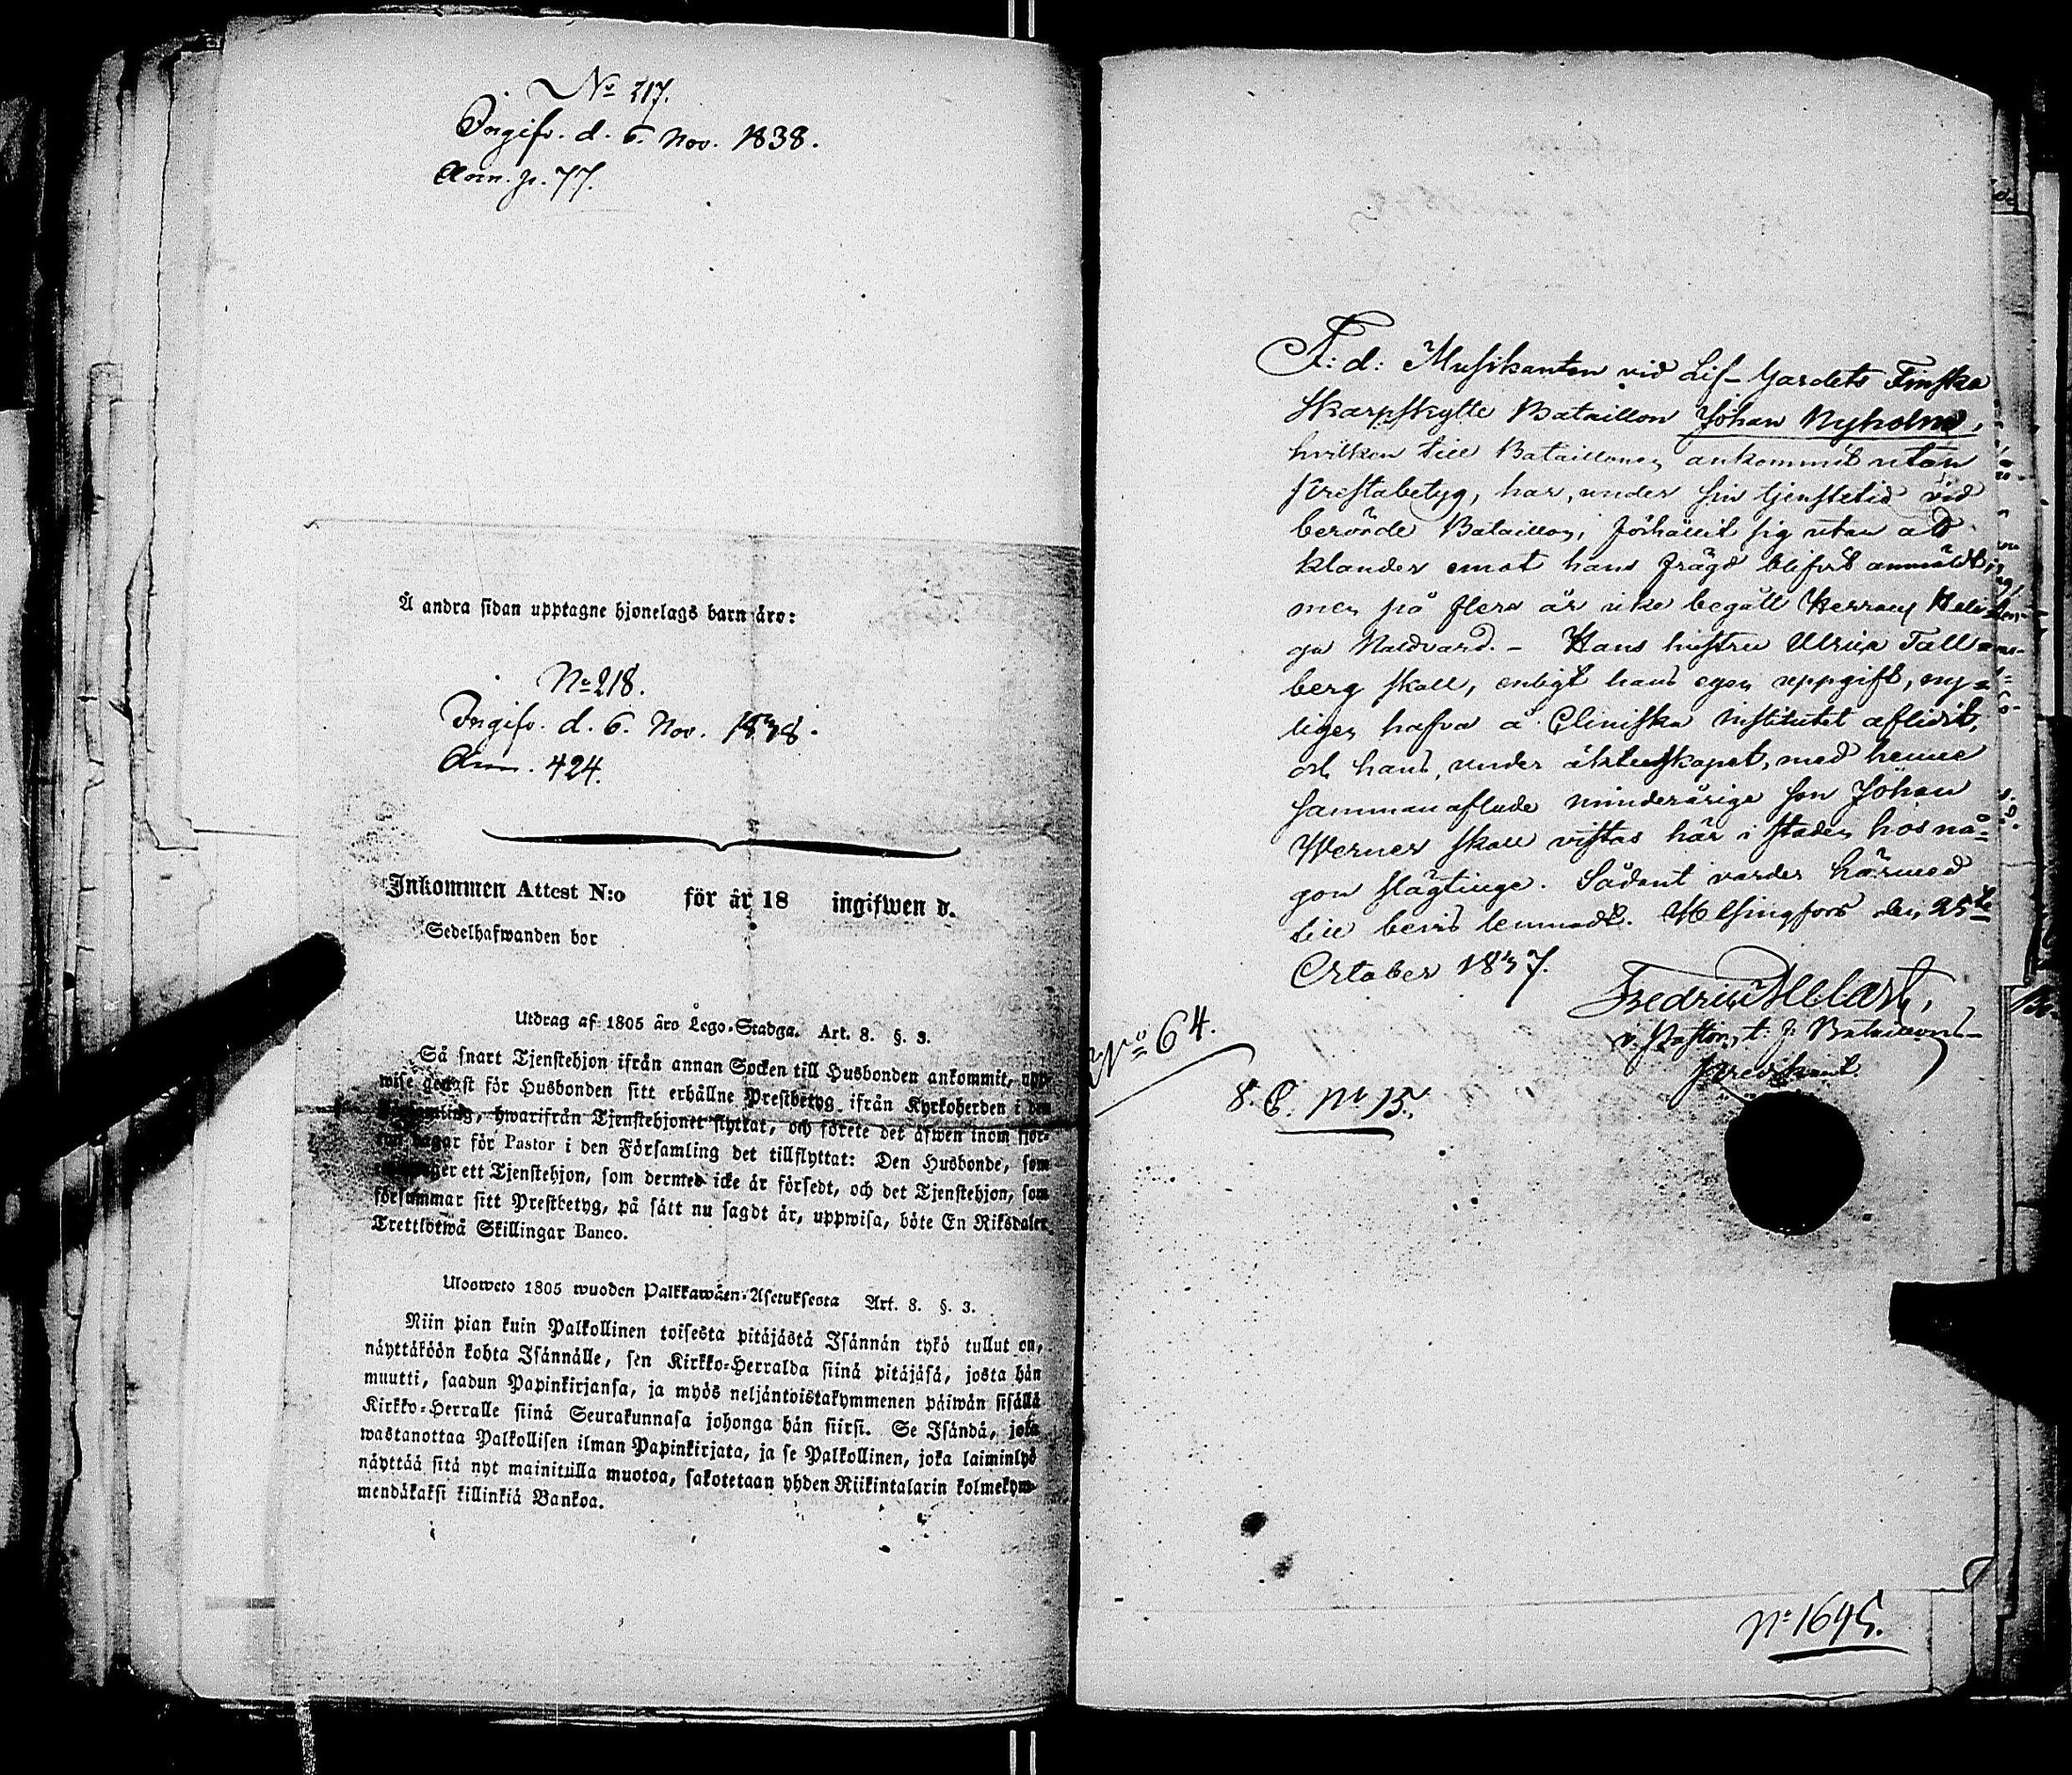 No 217.
Ingifv. d. 6. Nov. 1838.
Ann. p. 77.
Å andra sidan upptagne hjonelags barn äro:
No 218.
Ingifv. d. 6. Nov. 1838.
Ann. 424.
Inkommen Attest N:o för år 18 ingifwen d.
Sedelhafwanden bor
Utdrag af 1805 års Lego-Stadga. Art. 8. §. 3.
Så snart Tjenstehjon ifrån annan Socken till Husbonden ankommit, upp-
wise genast för Husbonden sitt erhållne Prestbetyg ifrån Kyrkoherden i den
Församling, hwarifrån Tjenstehjonet flyttat, och förete det äfwen inom fjor-
ton dagar för Pastor i den Församling det tillflyttat: Den Husbonde, som
ett Tjenstehjon, som dermed icke är försedt, och det Tjenstehjon, som
försummar sitt Prestbetyg, på sätt nu sagdt är, uppwisa, böte En Riksdaler
Trettiotwå Skillingar Banco.
Ulosweto 1805 wuoden Palkkawäen-Asetuksesta Art. 8. §. 3.
Niin pian kuin Palkollinen toisesta pitäjästä Isännän tykö tullut on,
näyttäköön kohta Isännälle, sen Kirkko-Herralda siinä pitäjäsä, josta hän
muutti, saadun Papinkirjansa, ja myös neljäntoistakymmenen päiwän sisällä
Kirkko-Herralle siinä Seurakunnasa johonga hän siirsi. Se Isändä, joka
wastanottaa Palkollisen ilman Papinkirjata, ja se Palkollinen, joka laiminlyö
näyttää sitä nyt mainitulla muotoa, sakotetaan yhden Riikintalarin kolmekym-
mendäkaksi killinkiä Bankoa.
F: d: Musikanten vid Lif-Gardets Finska
Skarpskytte Bataillon Johan Nyholm,
hvilken till Bataillonen ankommit utan
Prestabetyg, har, under sin tjenstetid vid
berörde Bataillon, förhållit sig utan att
klander emot hans frägd blifvit anmäldt,
men på flera år icke begått Herrans Heli-
ga Nattvard. - Hans hustru Ulrica Tall-
berg skall, enligt hans egen uppgift, ny-
ligen hafva å Cliniska institutet aflidit,
och hans, under äktenskapet, med henne
sammanaflade minderårige son Johan
Werner skall vistas här i staden hos nå-
gon slägtinge. Sådant varder härmed
till bevis lemnadt. Helsingfors den 25te
October 1837.
Fredric
v. Pastor, t. f. Bataillons-
Predikant.
No 64.
8. C. No 15.
No 1645.